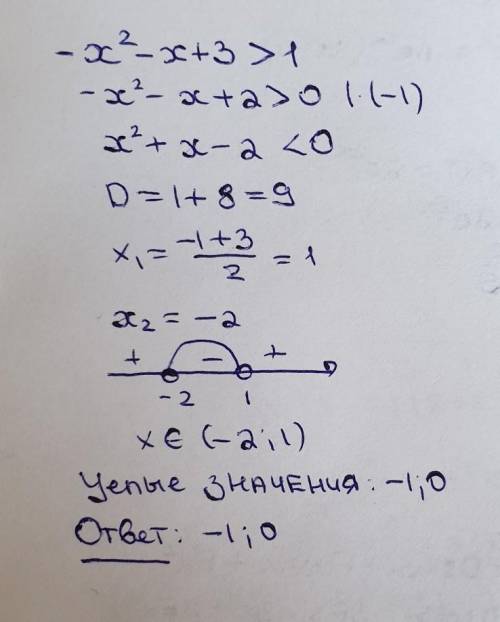 -x² - x + 3 > 1
-x² - x + 2 > 0 | · (-1)
x² + x - 2 < 0
D = 1 + 8 = 9
x₁ = (-1+3)/2 = 1
x₂ = -2
+ - +
-2 1
x ∈ (-2; 1)
Целые значения: -1; 0
Ответ: -1; 0